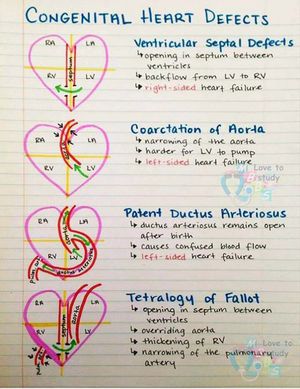 CONGENITAL HEART DEFECTS
RA LA
septum
RV LV
Ventricular Septal Defects
↳opening in septum between
ventricles
↳backflow from LV to RV
↳right-sided heart failure
RA LA
aorta
RV LV
Coarctation of Aorta
↳narrowing of the aorta
↳harder for LV to pump
↳left-sided heart failure
Love to
study
RA LA
RV
pulm. art.
ductus arteriosus
Patent Ductus Arteriosus
↳ductus arteriosus remains open
after birth
↳causes confused blood flow
↳left-sided heart failure
RA LA
septum
aorta
RV LV
pulm. art.
Tetralogy of Fallot
↳opening in septum between
ventricles
↳overriding aorta
↳thickening of RV
↳narrowing of the pulmonary
artery
Love to
study